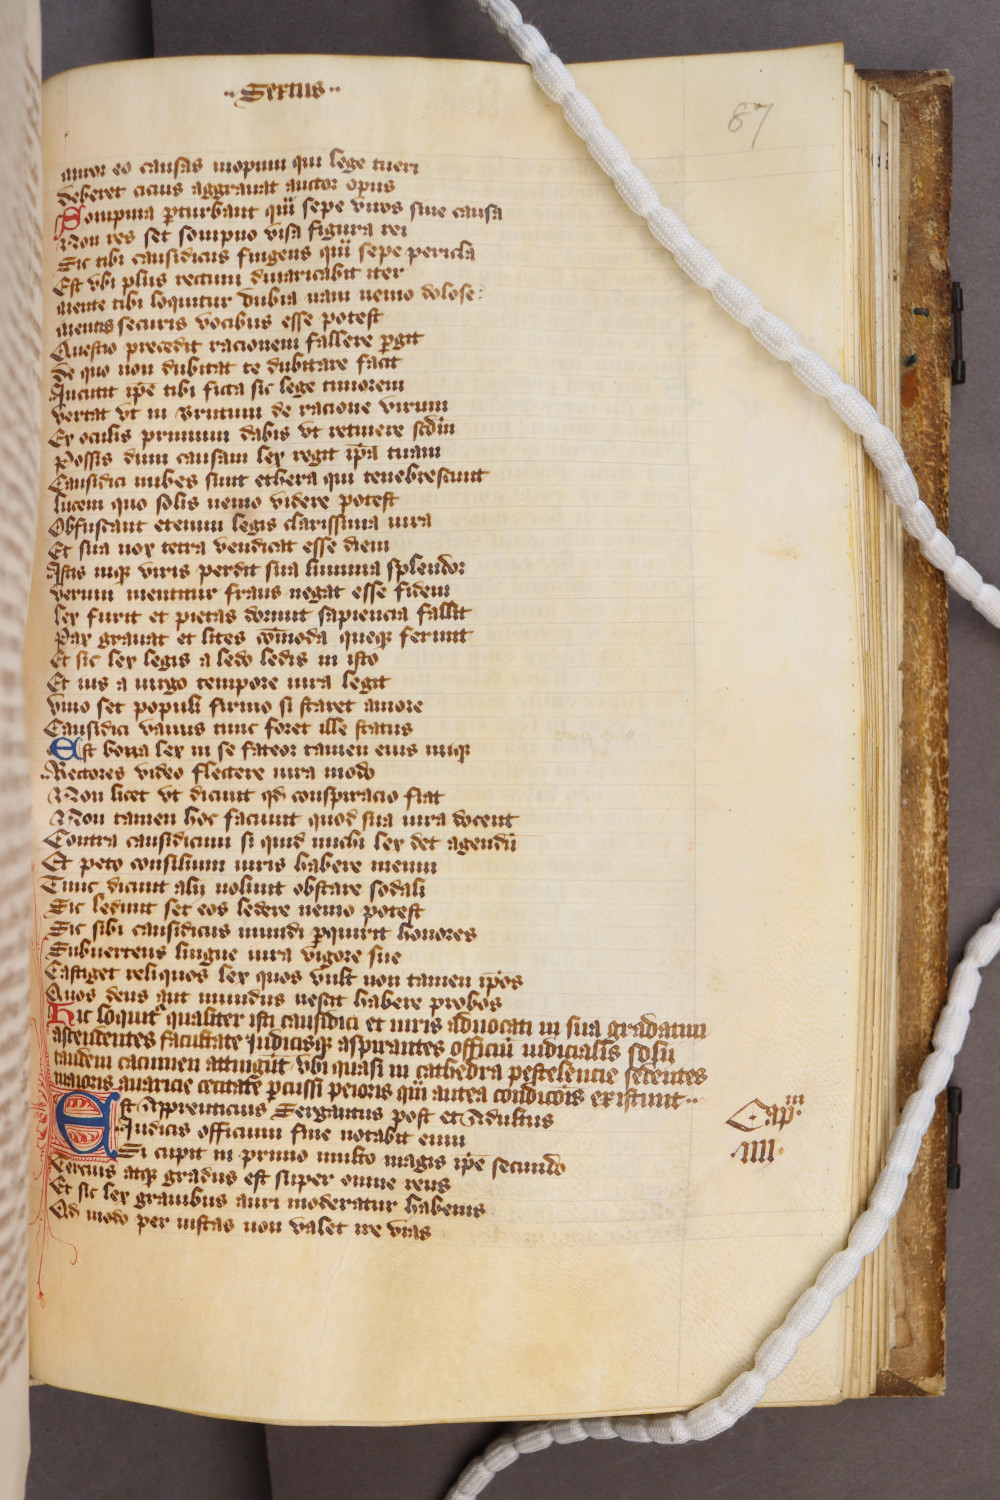 ·· Sextus ··
87
eo causas inopum qui lege tueri
deberet cicius aggrauat auctor opus
Sompnia pturbant qui sepe viros sine causa
Non res set sompno visa figura rei
Sic tibi causidicus fingens qui sepe pericla
Est vbi plus rectum diuaricabit iter
mente tibi loquitur dubia nam nemo dolose
mentis securis vocibus esse potest
Questio precedit racionem fallere pgit
de quo non dubitat te dubitare facit
Incutit ipe tibi ficta sic lege timorem
vertat vt in brutum de racione virum
Ex oculis primum dabis vt retinere scdm
Possis dum causam lex regit ipa tuam
Causidici nubes sunt ethera qui tenebrescunt
lucem quo solis nemo videre potest
Obfuscant etenim legis clarissima iura
Et sua nox tetra vendicat esse diem
Istis inque viris perdit sua lumina splendor
verum mentitur fraus negat esse fidem
lex furit et pietas dormit sapiencia fallit
Pax grauat et lites comoda queque ferunt
Et sic lex legis a ledo ledis in isto
Et ius a iurgo tempore iura legit
viuo set populi firmo si staret amore
Causidici vanus tunc foret ille status
Est bona lex in se fateor tamen eius inique
Rectores video flectere iura modo
Non licet vt dicunt qd conspiracio fiat
Non tamen hoc faciunt quod sua iura docent
Contra causidicum si quid michi lex det agendu
Et peto consilium iuris habere meum
Tunc dicunt alii nolunt obstare sodali
Sic ledunt set eos ledere nemo potest
Sic sibi causidicus mundi pquirit honores
Subuertens lingue iura vigore sue
Castiget reliquos lex quos vult non tamen ipos
Quos deus aut mundus nescit habere probos
Hic loquit qualiter isti causidici et iuris aduocati in sua gradatim
ascendentes facultate iudicisqe aspirantes officiu iudicialis solii
tandem cacumen attingut vbi quasi in cathedra pestelencie sedentes
maioris auaricie cecitate pcussi peioris qu antea condicois existunt ··
Est Apprenticius Sergantus post et Adultus
Iudicis officium fine notabit eum
Si cupit in primo multo magis ipe secundo
Capm
·iiii·
Tercius atqe gradus est super omne reus
Et sic lex grauibus auri moderatur habenis
Qd modo per iustas non valet ire vias